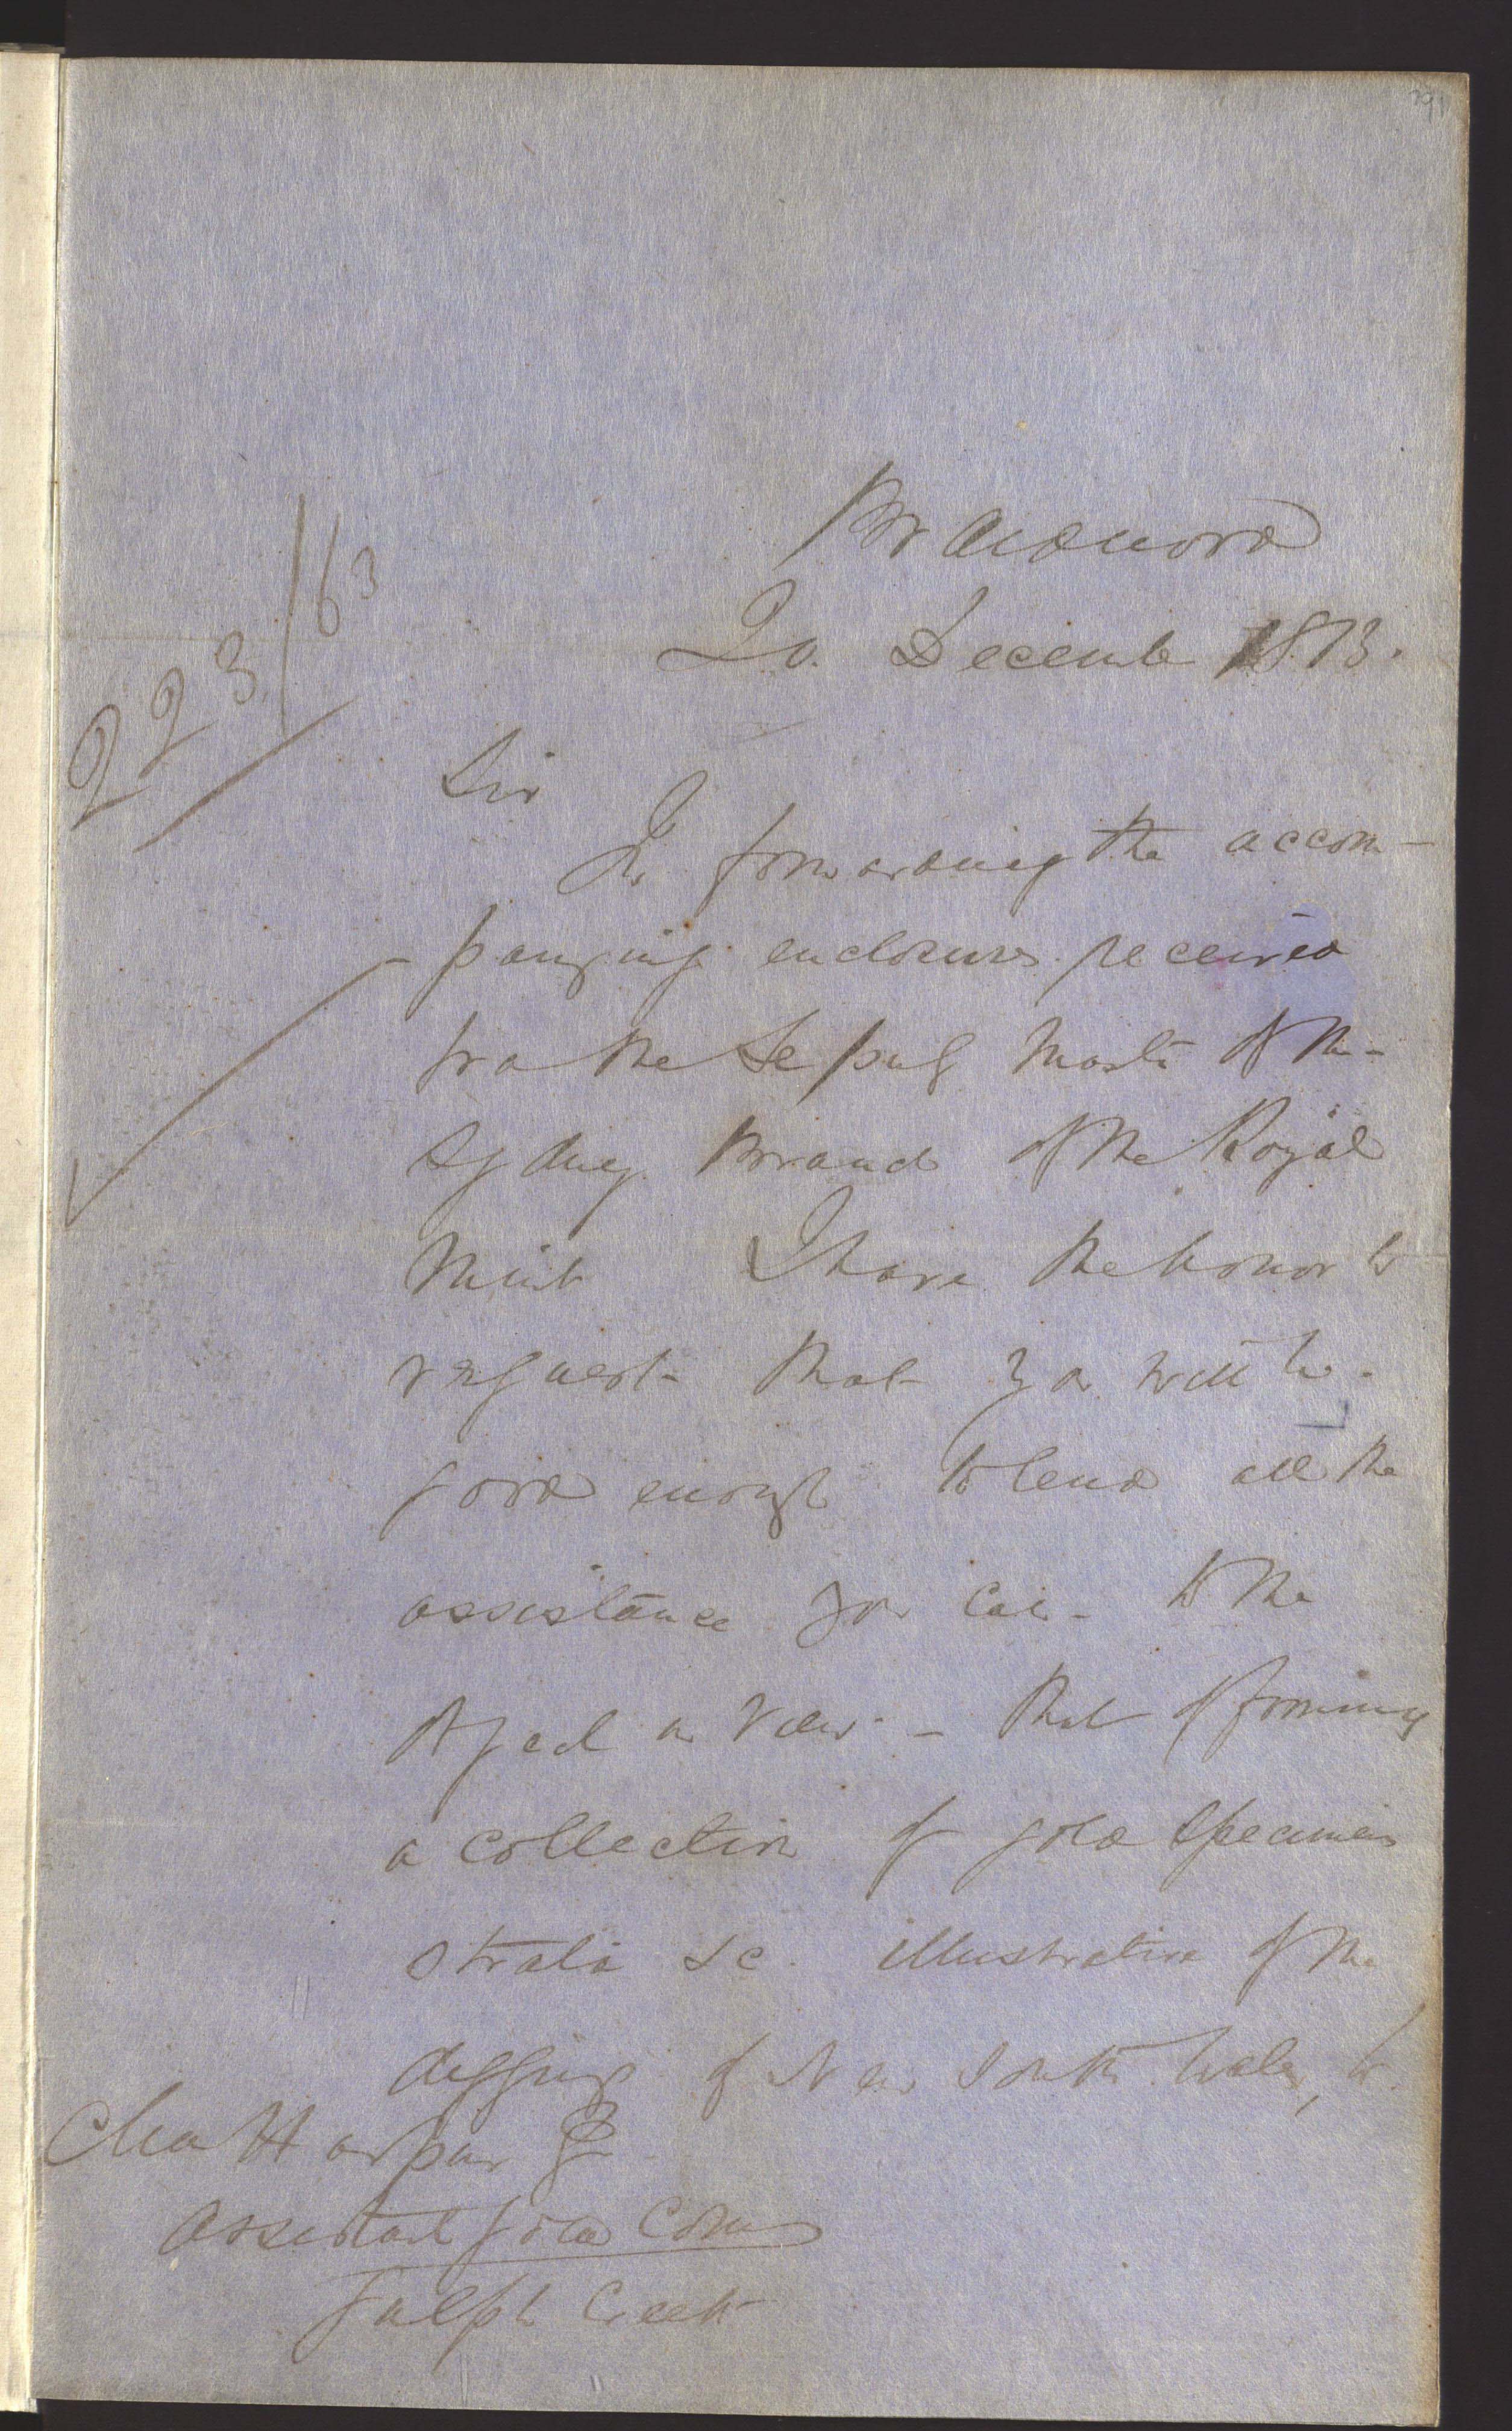 291
223/63
Braidwood
20. December 1873.
Sir
In forwarding the accom-
-panying enclosures received
from the Deputy Master of the
Sydney Branch of the Royal
Mint I have the honor to
request that you will be
good enough to lend all the
assistance you can to the
object in view - that of forming
a collection of gold specimens
strata &c. illustrative of the
diggings of New South Wales, to
Chas Harpur Esq
Assistant Gold Com
Gulph Creek